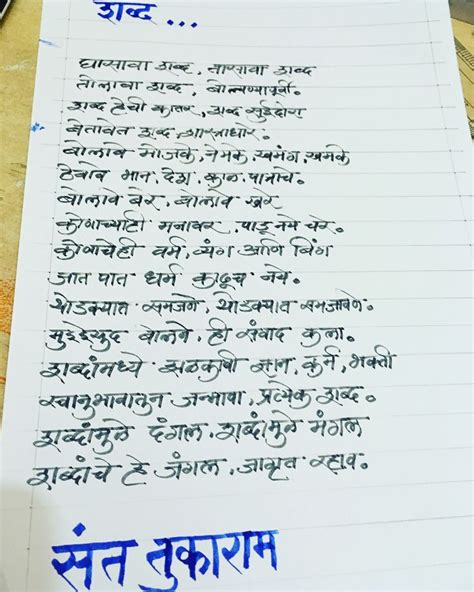 शब्द ...
घासावा शब्द, तासावा शब्द
तोलावा शब्द, बोलण्यापूर्वी.
शब्द हेची कातर, शब्द सुईदोरा
बेतावेत शब्द, शास्त्राधार.
बोलावे मोजके, नेमके, खमंग, खमके
ठेवावे भान, देश, काळ, पात्राचे.
बोलावे बरे, बोलावे खरे
कोणाच्याही मनावर, पाडू नये चरे.
कोणाचेही वर्म, व्यंग आणि बिंग
जात पात धर्म काढूच नये.
थोडक्यात समजणे, थोडक्यात समजावणे.
मुद्देसुद बोलणे, ही संवाद कला.
शब्दांमध्ये झळकावी ज्ञान, कर्म, भक्ती
स्वानुभावातुन जन्मावा, प्रत्येक शब्द.
शब्दांमुळे दंगल, शब्दांमुळे मंगल
शब्दांचे हे जंगल, जागृत रहाव.
संत तुकाराम